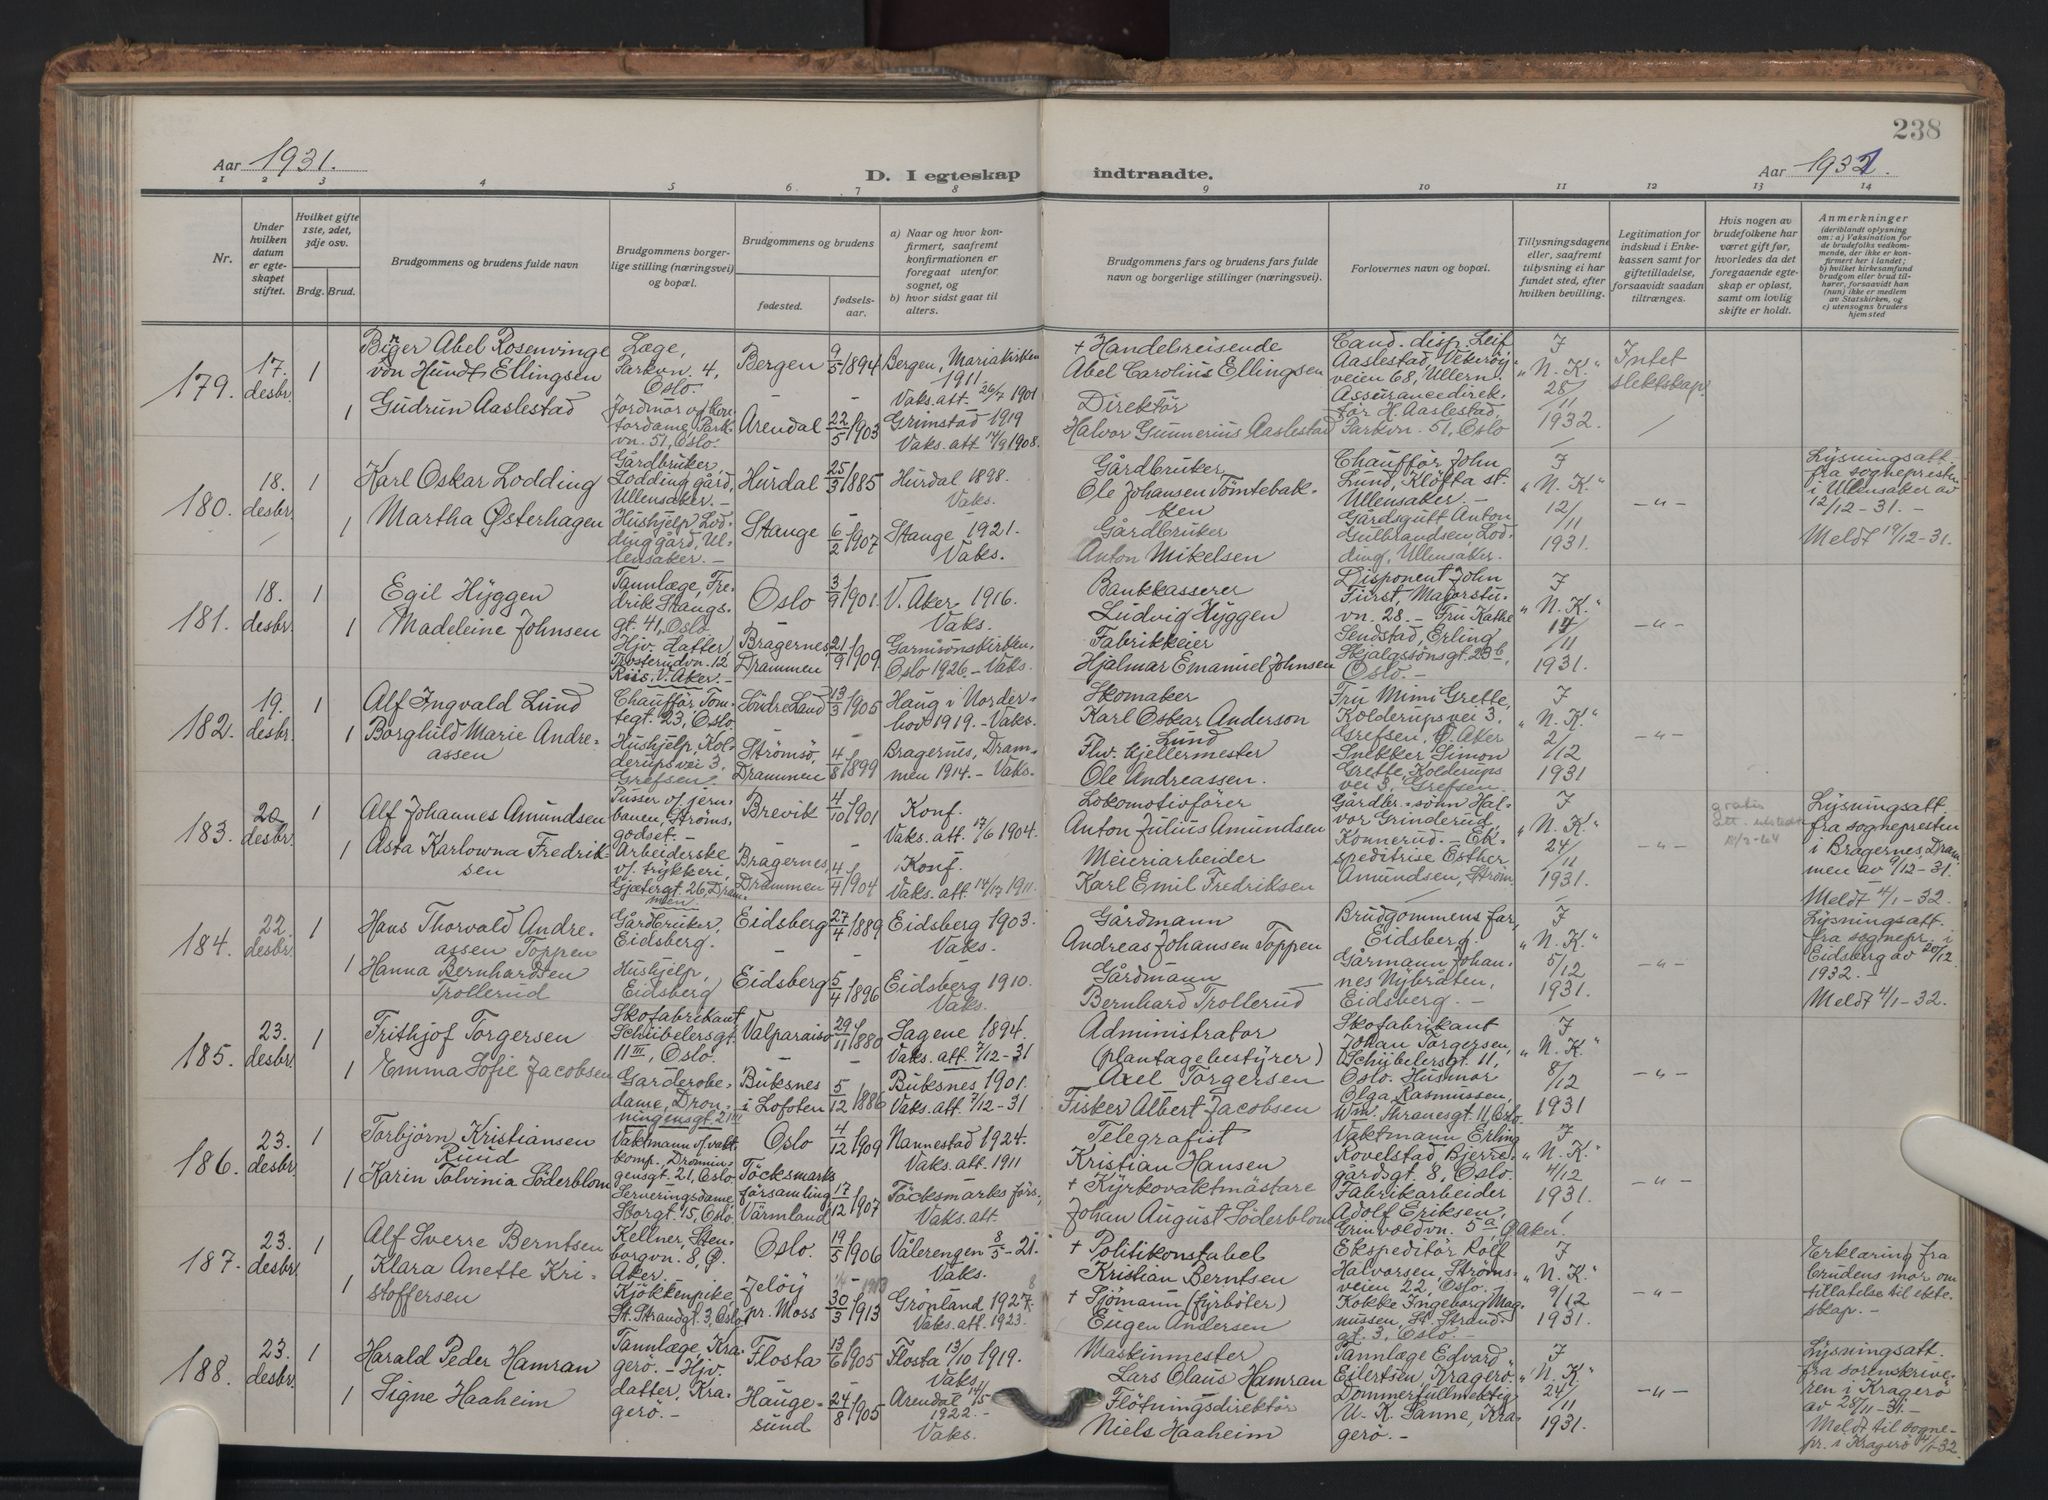 238
Aar 1931.
D. I egteskap indtraadte.
Aar 1931.
1 2 3 4 5 6. 7 8 9 10 11 12 13 14
Nr.
Under hvilken datum er egteskapet stiftet.
Hvilket gifte 1ste, 2det, 3dje osv.
Brdg. Brud.
Brudgommens og brudens fulde navn
Brudgommens borgerlige stilling (næringsvei) og bopæl.
Brudgommens og brudens
fødested.
fødselsaar.
a) Naar og hvor konfirmert, saafremt konfirmationen er foregaat utenfor sognet, og
b) hvor sidst gaat til alters.
Brudgommens fars og brudens fars fulde navn og borgerlige stillinger (næringsvei).
Forlovernes navn og bopæl.
Tillysningsdagene eller, saafremt tillysning ei har fundet sted, efter hvilken bevilling.
Legitimation for indskud i Enkekassen samt for giftetilladelse, forsaavidt saadan tiltrænges.
Hvis nogen av brudefolkene har været gift før, hvorledes da det foregaaende egteskap er opløst, samt om lovlig skifte er holdt.
Anmerkninger
(deriblandt oplysning om: a) Vaksination for de brudefolks vedkommende, der ikke er konfirmert her i landet;
b) hvilket kirkesamfund brudgom eller brud tilhører, forsaavidt han (nun) ikke er medlem av Statskirken, og
c) utensogns bruders hjemsted
179. 17. desbr. 1
Birger Abel Rosenvinge
von Hundt Ellingsen
Læge,
Parkvn. 4,
Oslo.
Bergen 9/5 1894
Bergen, Mariakirken
1911
Vaks. att. 26/7 1901
+ Handelsreisende
Abel Carolius Ellingsen
Cand. disp. Leif
Aaslestad, Vekerøy
veien 68, Ullern.
I
"N. K."
28/
11
1932.
Intet
slektskap.
1 Gudrun Aaslestad
Jordmor og kon-
tordame, Park-
vn. 51, Oslo.
Arendal 22/5 1903
Grimstad 1919
Vaks. att 14/9 1908.
Direktør
Halvor Gunnerius Aaslestad
Assurancedirek-
tør H. Aaslestad,
Parkvn. 51, Oslo
180. 18. desbr. 1
Karl Oskar Lodding
Gårdbruker,
Lodding gård,
Ullensaker. -
Hurdal 25/3 1885
Hurdal 1898.
Vaks.
Gårdbruker
Ole Johansen Tömtebak-
ken
Chauffør John
Lund, Kløfta st.
Ullensaker. -
I
"N. K."
12/
11
1931.
- " -
Lysningsatt.
fra sognepresten
i Ullensaker av
12/12-31. -
Meldt 19/12-31.
1 Martha Østerhagen
Hushjelp, Lod-
ding gård, Ul-
lensaker. -
Stange 6/2 1907
Stange 1921.
Vaks.
Gårdbruker
Anton Mikelsen
Gårdsgutt Anton
Gulbrandsen, Lod-
ding, Ullensaker.
181. 18. desbr. 1
Egil Hÿggen
Tannlæge, Fre-
drik Stangs-
gt. 41, Oslo
Oslo 3/9 1901.
V. Aker 1916.
Vaks.
Bankkasserer
Ludvig Hÿggen
Disponent John
Fürst, Majorstu-
vn. 28. - Fru Kathe
I
"N. K."
14/
11
1931.
- " -
1 Madeleine Johnsen
Hjv. datter,
Trosterudvn. 12
Riis, V. Aker. -
Bragernes
Drammen 21/9 1909.
Garnisonskirken,
Oslo 1926 - Vaks.
Fabrikkeier
Hjalmar Emanuel Johnsen
Sendstad, Erling
Skjalgssönsgt. 23b,
Oslo. -
182. 19. desbr. 1
Alf Ingvald Lund
Chauffør Tom-
tegt. 23, Oslo
Söndre Land 13/3 1905
Haug i Norder-
hov 1919. - Vaks.
Skomaker
Karl Oskar Anderson
Lund
Fru Mimi Grette,
Kolderupsvei 3,
Grefsen, Ø. Aker
I
"N. K."
2/
12
1931
- " -
1 Borghild Marie Andre-
assen
Hushjelp, Kol-
derupsvei 3,
Grefsen.
Strömsö,
Drammen 4/8 1899
Bragernes, Dram-
men 1914. - Vaks.
Fhv. hjellermester
Ole Andreassen.
Snekker Simon
Grette, Kolderups
vei 3, Grefsen.
183. 20. desbr. 1
Alf Johannes Amundsen
Pusser v/ jern-
banen, Ströms-
godset. -
Brevik 4/10 1901
Konf.
Vaks. att. 17/6 1904.
Lokomotivfører
Anton Julius Amundsen
Gårdbr.-sønn Hal-
vor Grinderud,
Konnerud. - Ek-
I
"N. K."
24/
11
1931.
- " -
gratis
att. utstedt
Lysningsatt.
fra sognepresten
i Bragernes, Dram-
men av 9/12-31.
Meldt 4/1-32.
1 Asta Karlowna Fredrik-
sen
Arbeiderske
v/ trykkeri,
Gjetergt. 26, Dram-
men.
Bragernes,
Drammen 4/4 1904
Konf.
Vaks. att. 14/12 1911.
Meieriarbeider
Karl Emil Fredriksen
speditrise Esther
Amundsen, Ström.
184. 22. desbr. 1
Hans Thorvald Andre-
assen Toppen
Gårdbruker,
Eidsberg.
Eidsberg 27/4 1889
Eidsberg 1903.
Vaks.
Gårdmann
Andreas Johansen Toppen
Brudgommens far,
Eidsberg.
I
"N. K."
5/12
1931.
- " -
Lysningsatt.
fra sognepr. i
Eidsberg av 20/12
1932. -
Meldt 4/1-32.
1 Hanna Bernhardsen
Trollerud
Hushjelp,
Eidsberg
Eidsberg 5/4 1896
Eidsberg 1910.
Vaks.
Gårdmann
Bernhard Trollerud
Gårmann Johan-
nes Nybråten,
Eidsberg. -
185. 23. desbr. 1
Frithjof Torgersen
Skofabrikant
Schübelersgt.
11 III, Oslo.
Valparaiso 29/11 1880
Sagene 1894.
Vaks. att. 7/12-31
Administrator
(plantagebestyrer)
Axel Torgersen
Skofabrikant
Johan Torgersen,
Schübelersgt. 11,
I
"N. K."
8/12
1931
- " -
1 Emma Sofie Jacobsen
Garderobe-
dame, Dron-
ningensgt. 21 III
Buksnes
i Lofoten 5/12 1886
Buksnes 1901.
Vaks. att. 7/12-31
Fisker Albert Jacobsen
Oslo. Husmor
Olga Rasmussen,
Wm. Thranesgt. 11, Oslo.
186. 23. desbr. 1
Torbjörn Kristiansen
Ruud
Vaktmann v/ vakt-
komp. Dronnin-
gensgt. 21, Oslo
Oslo 4/12 1909
Nannestad 1924.
Vaks. att. 1911
Telegrafist
Kristian Hansen
Vaktmann Erling
Rovelstad Bjerre-
gårdsgt. 8, Oslo.
I
"N. K."
4/12
1931.
- " -
1 Karin Tolvinia Söderblom
Serveringsdame
Storgt. 15, Oslo.
Töcksmarks
församling
Värmland 17/12 1907
Töcksmarks förs.,
Vaks. att.
+ Kyrkovaktmästare
Johan August Söderblom
Fabrikarbeider
Adolf Eriksen,
Grinvoldvn. 5a, Ø. Aker.
187. 23. desbr. 1
Alf Sverre Berntsen
Kellner, Sten-
borgvn. 8, Ø.
Aker.
Oslo. 19/5 1906
Vålerengen 8/5-21.
Vaks.
+ Politikonstabel
Kristian Berntsen
Ekspeditör Rolf
Halvorsen, Ströms-
veien 22, Oslo. -
I
"N. K."
9/12
1931.
- " -
Erklæring fra
brudens mor om
tillatelse til ekte-
skap. -
1 Klara Anette Kri-
stoffersen
Kjökkenpike
St. Strandgt. 3, Oslo
Jelöy
pr. Moss 30/3 1913
Grönland 1927.
Vaks. att. 1923.
+ Sjömann (fyrböter)
Eugen Andersen
Kokke Ingeborg Mag-
nussen, St. Strand-
gt. 3, Oslo. -
188. 23. desbr. 1
Harald Peder Hamran
Tannlæge, Kra-
gerö. - Hjv.
Flosta 13/6 1905
Flosta 13/10 1919.
Vaks.
Maskinmester
Lars Olaus Hamran
Tannlæge Edvard
Eilertsen, Kragerö.
I
"N. K."
24/
11
1931.
- " -
Lysningsatt.
fra sorenskrive-
ren i Kragerö
av 28/11-31. -
Meldt til sogne-
pr. i Kragerö 4/1-32.
1 Signe Haaheim
datter, Kra-
gerö. -
Hauge-
sund 24/8 1905
Arendal
1922. -
Vaks.
Flötningsdirektör
Niels Haaheim
Dommerfullmektig
U. K. Sanne, Kra-
gerö. -